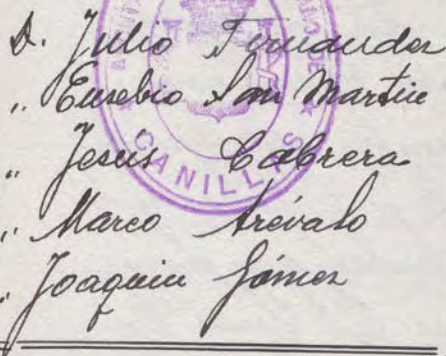 D. Julio Fernandez
" Eusebio San Martín
" Jesús Cabrera
" Marco Arévalo
" Joaquin Gómez
CANILLAS